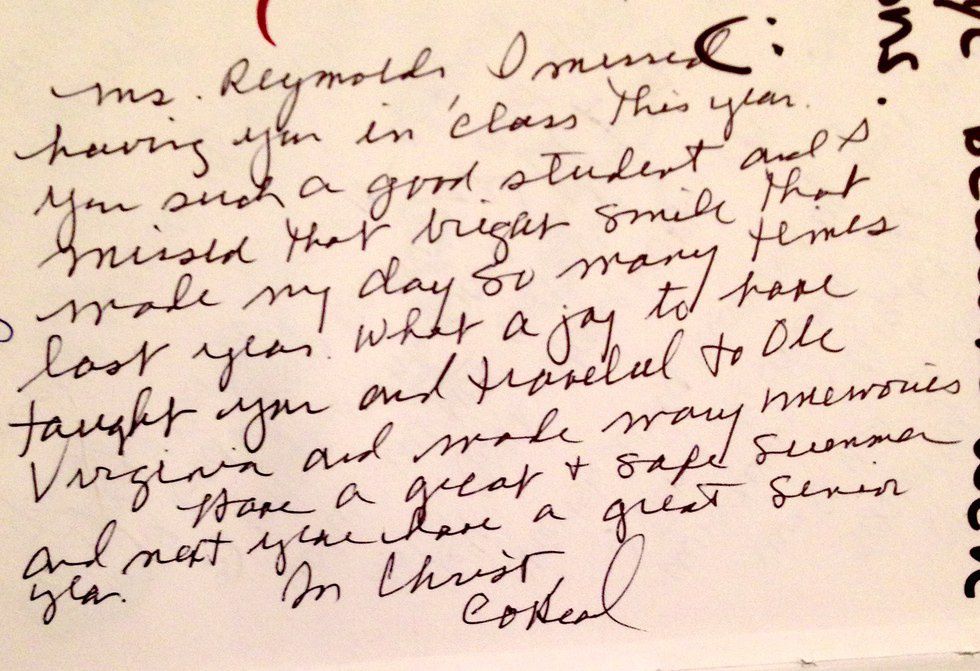 Ms. Reynolds, I missed
having you in class this year.
You such a good student and I
missed that bright smile that
made my day so many times
last year. What a joy to have
taught you and traveled to Ole
Virginia and made many memories
Have a great + safe summer
and next year have a great senior
year.
In Christ,